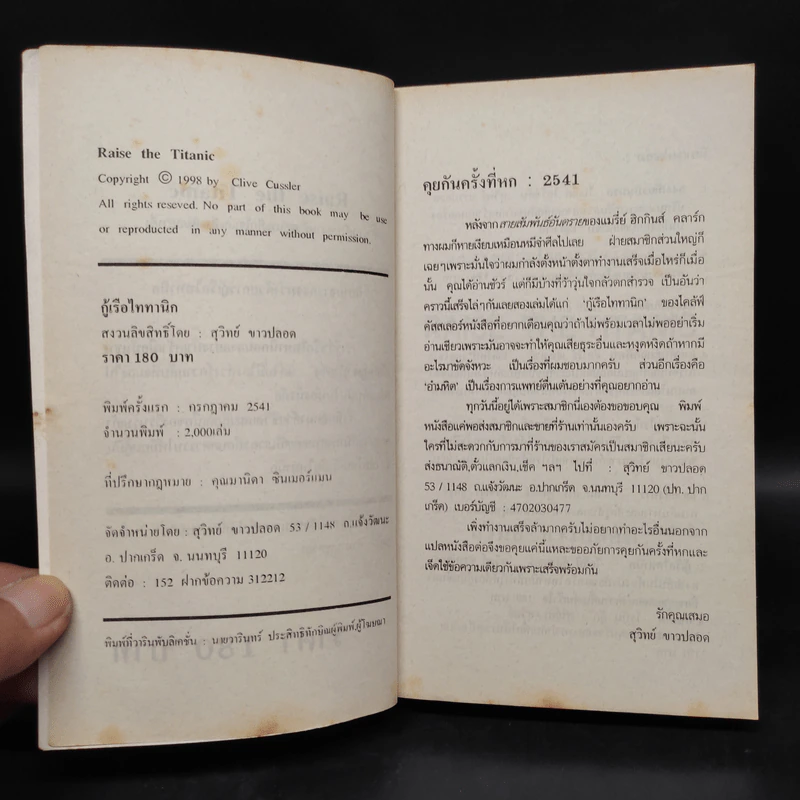 Raise the Titanic
Copyright © 1998 by Clive Cussler
All rights reseved. No part of this book may be use
or reproduced in any manner without permission.
กู้เรือไททานิก
สงวนลิขสิทธิ์โดย : สุวิทย์ ขาวปลอด
ราคา 180 บาท
พิมพ์ครั้งแรก : กรกฎาคม 2541
จำนวนพิมพ์ : 2,000เล่ม
ที่ปรึกษากฎหมาย : คุณมานิตา ซินเมอร์แมน
จัดจำหน่ายโดย : สุวิทย์ ขาวปลอด 53/1148 ถ.แจ้งวัฒนะ
อ. ปากเกร็ด จ. นนทบุรี 11120
ติดต่อ : 152 ฝากข้อความ 312212
พิมพ์ที่วารินพับลิเคชั่น : นายวารินทร์ ประสิทธิทักษิณผู้พิมพ์,ผู้โฆษณา
คุยกันครั้งที่หก : 2541
หลังจากสายสัมพันธ์อันตรายของแมรี่ย์ ฮิกกินส์ คลาร์ก
ทางผมก็หายเงียบเหมือนหมีจำศีลไปเลย ฝ่ายสมาชิกส่วนใหญ่ก็
เฉยๆเพราะมั่นใจว่าผมกำลังตั้งหน้าตั้งตาทำงานเสร็จเมื่อไหร่ก็เมื่อ
นั้น คุณได้อ่านชัวร์ แต่ก็มีบ้างที่ว้าวุ่นใจกลัวตกสำรวจ เป็นอันว่า
คราวนี้เสร็จไล่ๆกันเลยสองเล่มได้แก่ 'กู้เรือไททานิก' ของไคล้ฟ์
คัสสเลอร์หนังสือที่อยากเตือนคุณว่าถ้าไม่พร้อมเวลาไม่พออย่าเริ่ม
อ่านเชียวเพราะมันอาจจะทำให้คุณเสียธุระอื่นและหงุดหงิดถ้าหากมี
อะไรมาขัดจังหวะ เป็นเรื่องที่ผมชอบมากครับ ส่วนอีกเรื่องคือ
'อำมหิต' เป็นเรื่องการแพทย์ตื่นเต้นอย่างที่คุณอยากอ่าน
ทุกวันนี้อยู่ได้เพราะสมาชิกนี่เองต้องขอขอบคุณ พิมพ์
หนังสือแค่พอส่งสมาชิกและขายที่ร้านเท่านั้นเองครับ เพราะฉะนั้น
ใครที่ไม่สะดวกกับการมาที่ร้านของเราสมัครเป็นสมาชิกเสียนะครับ
ส่งธนาณัติ,ตั๋วแลกเงิน,เช็ค ฯลฯ ไปที่ : สุวิทย์ ขาวปลอด
53/1148 ถ.แจ้งวัฒนะ อ.ปากเกร็ด จ.นนทบุรี 11120 (ปท. ปาก
เกร็ด) เบอร์บัญชี : 4702030477
เพิ่งทำงานเสร็จล้ามากครับไม่อยากทำอะไรอื่นนอกจาก
แปลหนังสือต่อจึงขอคุยแค่นี้แหละขออภัยการคุยกันครั้งที่หกและ
เจ็ดใช้ข้อความเดียวกันเพราะเสร็จพร้อมกัน
รักคุณเสมอ
สุวิทย์ ขาวปลอด